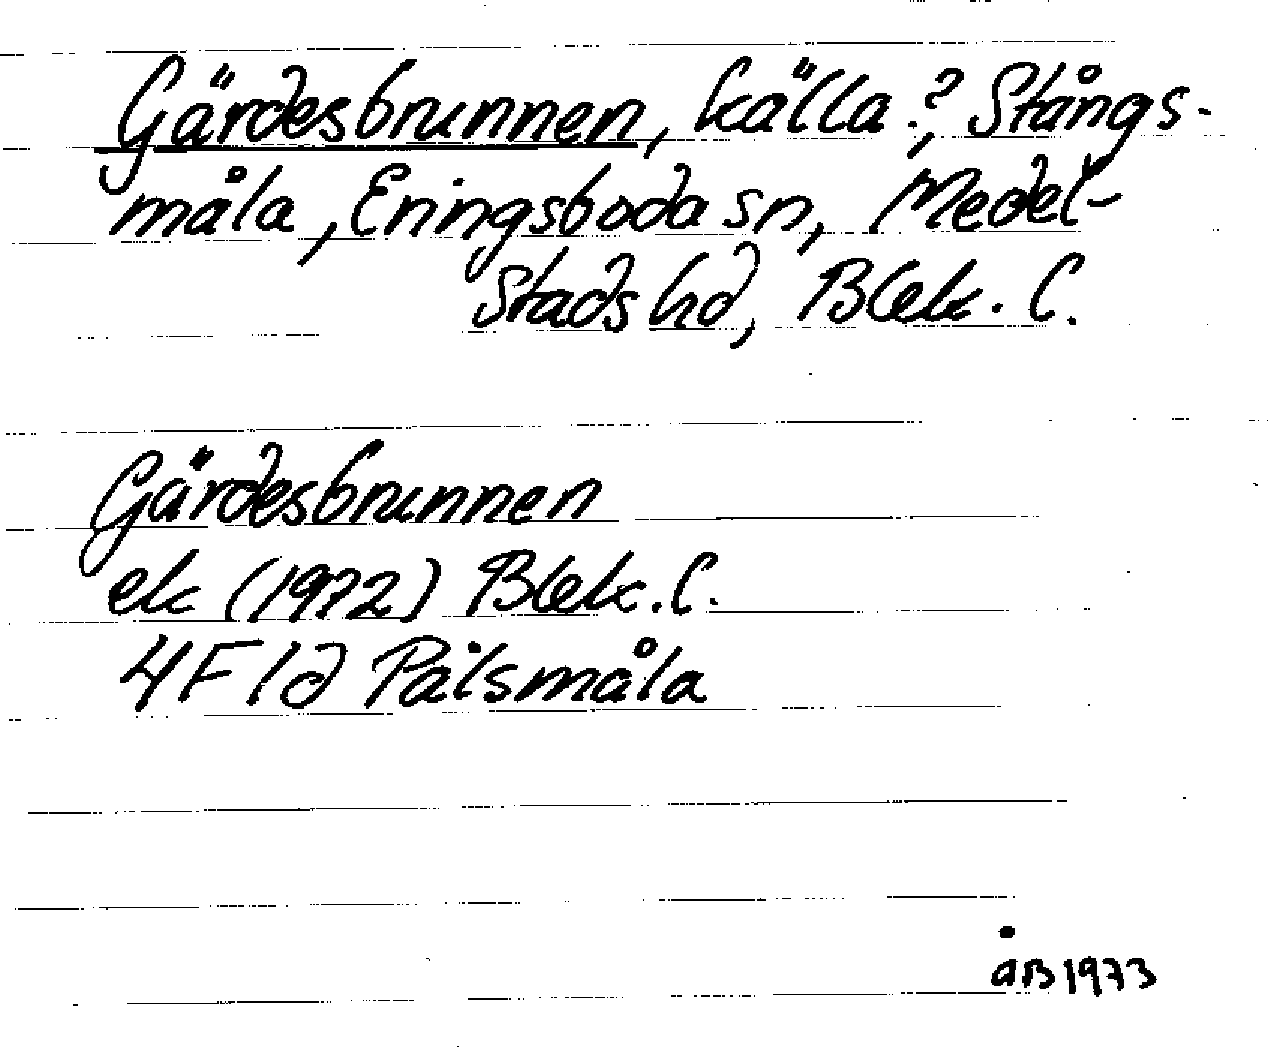 Gärdesbrunnen, källa?, Stångs-
måla, Eringsboda sn, Medel-
stads hd, Blek. l.
Gärdesbrunnen
ek (1972) Blek. l.
4F 1d Pålsmåla
åB 1973